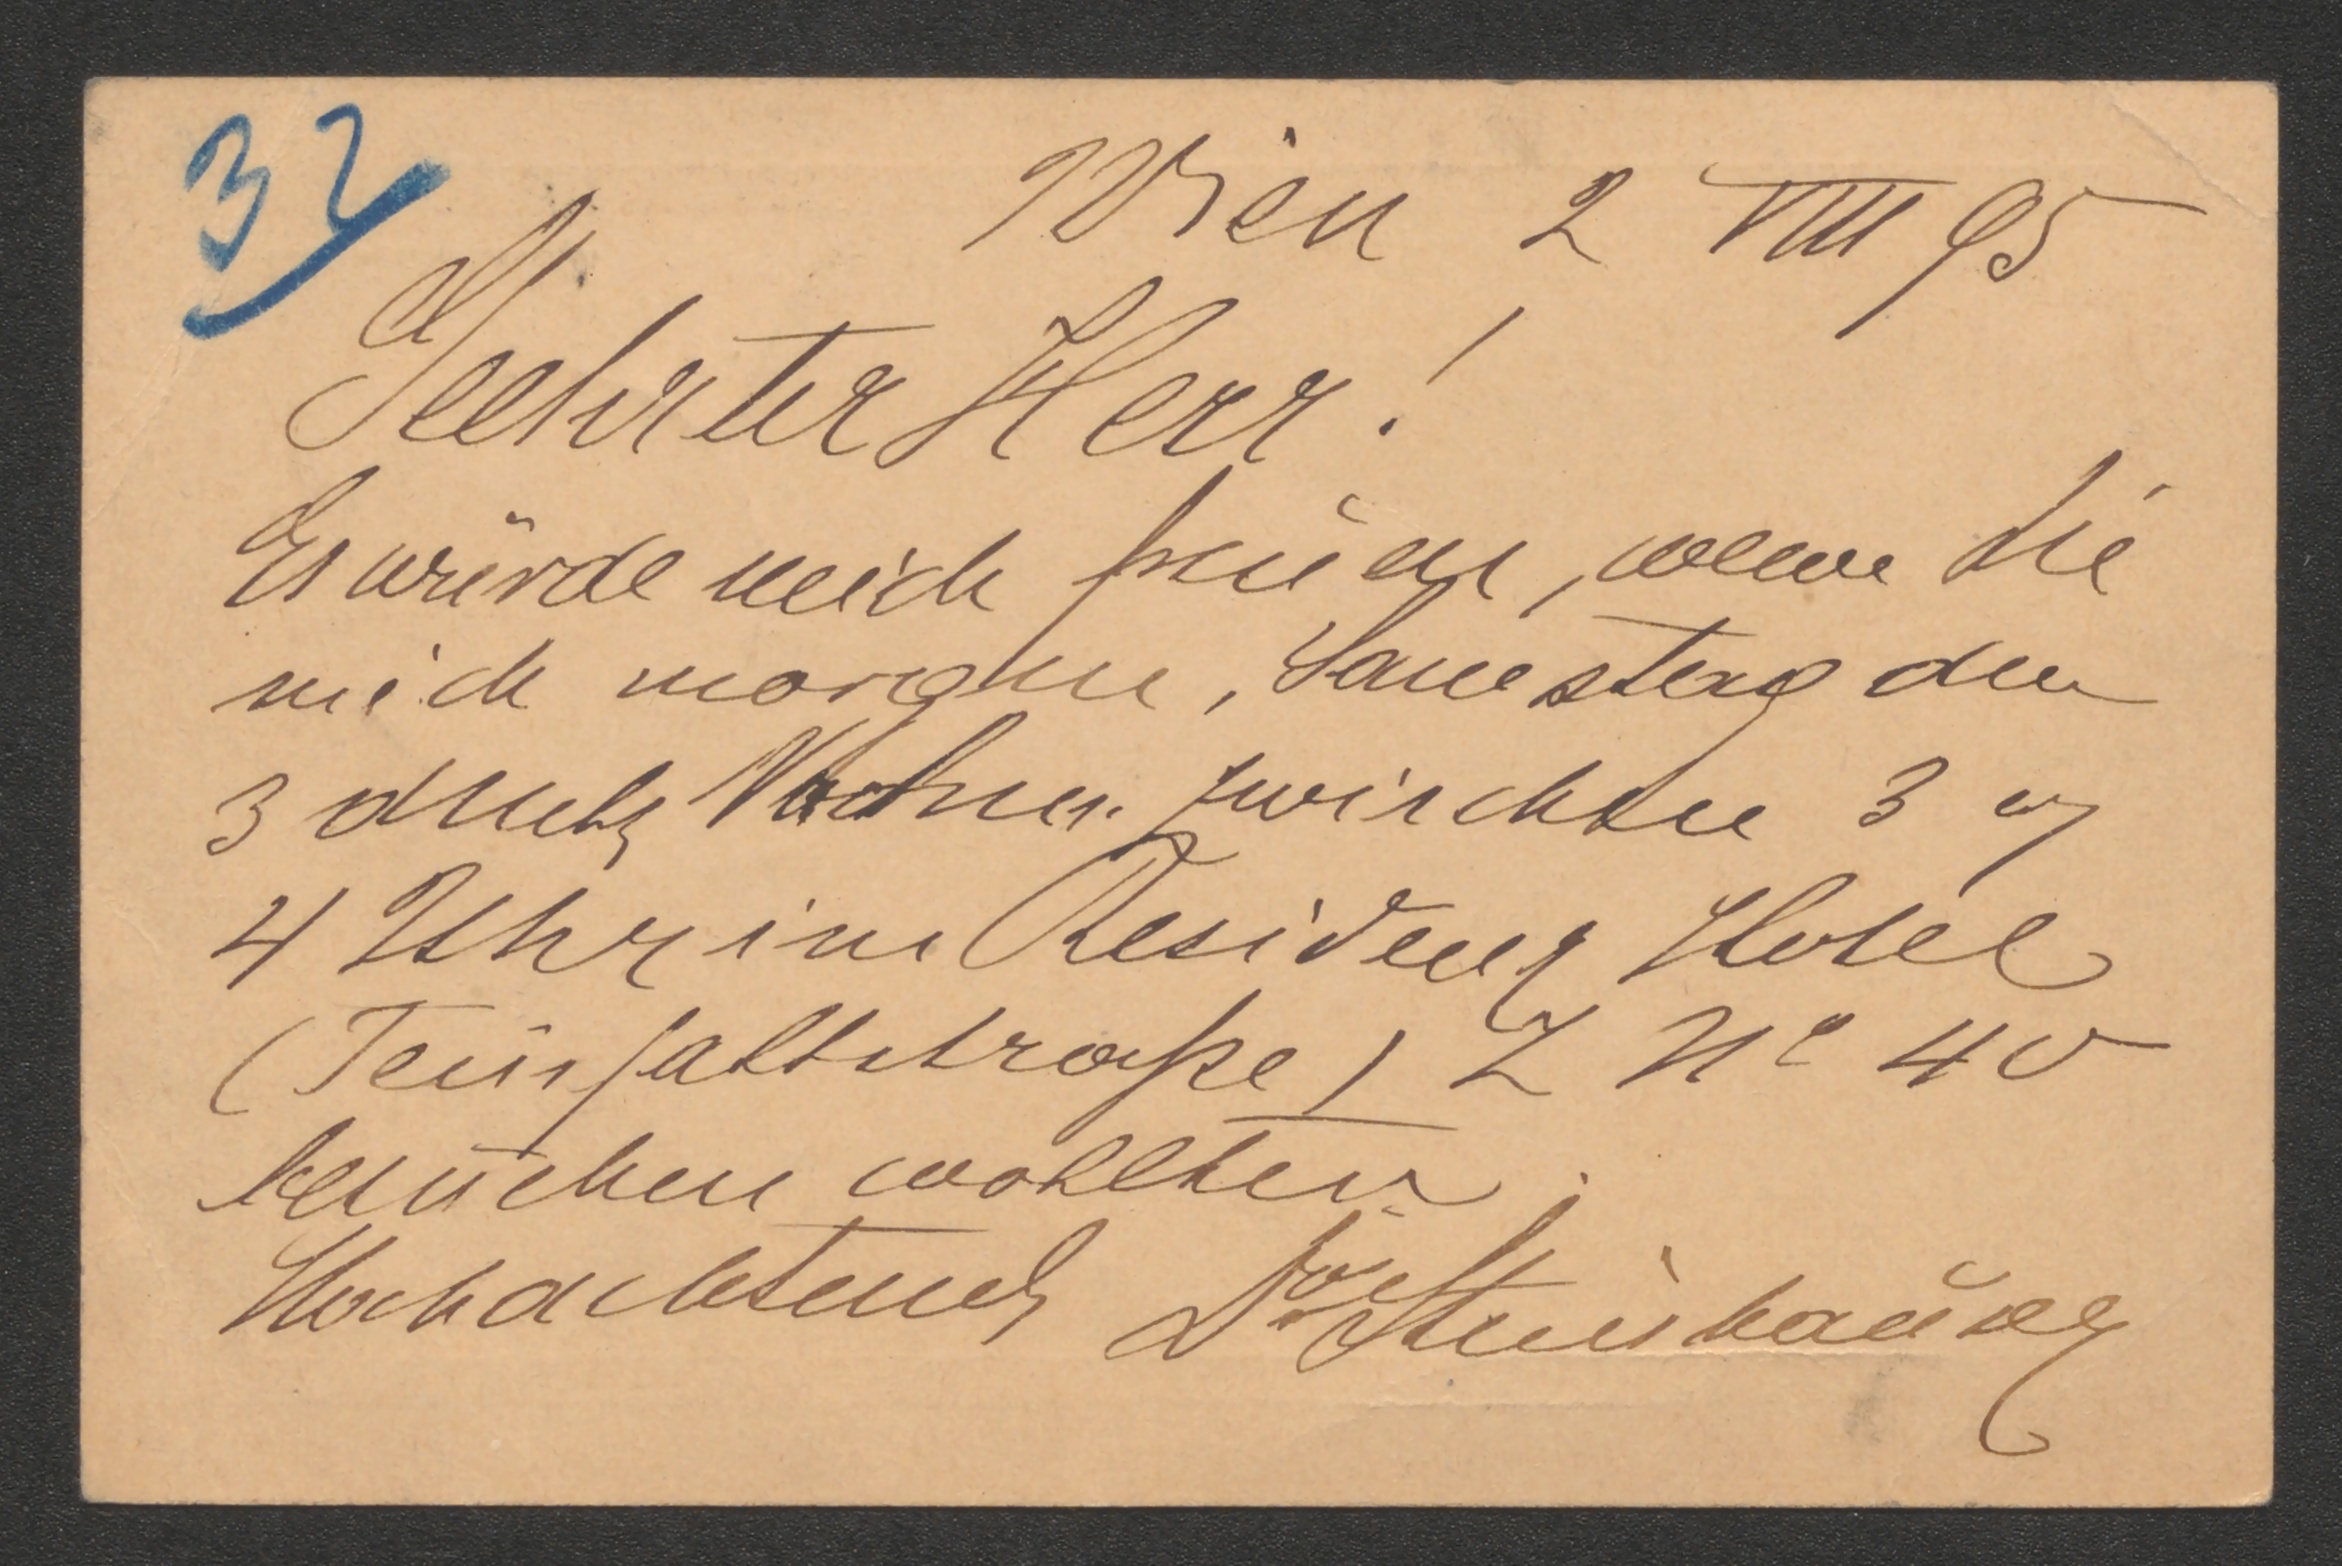 32
Wien 2 VIII 95
Geehrter Herr!
Es würde mich freuen, wenn Sie
mich morgen, Samstag den
3 d. Nachm. zwischen 3 u
4 Uhr im Residenz Hotel
(Teinfaltstraße) Z Nº 40
besuchen wollten.
Hochachtend Dr